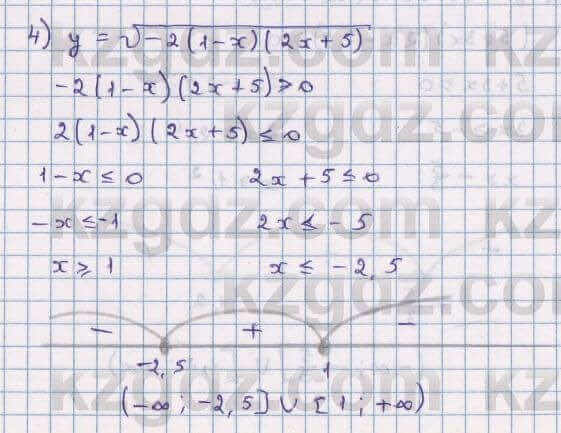 4) y = √-2(1-x)(2x+5)
-2(1-x)(2x+5) ≥ 0
2(1-x)(2x+5) ≤ 0
1-x ≤ 0 2x+5 ≤ 0
-x ≤ -1 2x ≤ -5
x ≥ 1 x ≤ -2,5
- + -
-2,5 1
(-∞; -2,5] ∪ [1; +∞)
kzgdz.com
kzgdz.com
kzgdz.com
kzgdz.com
kzgdz.com
kzgdz.com